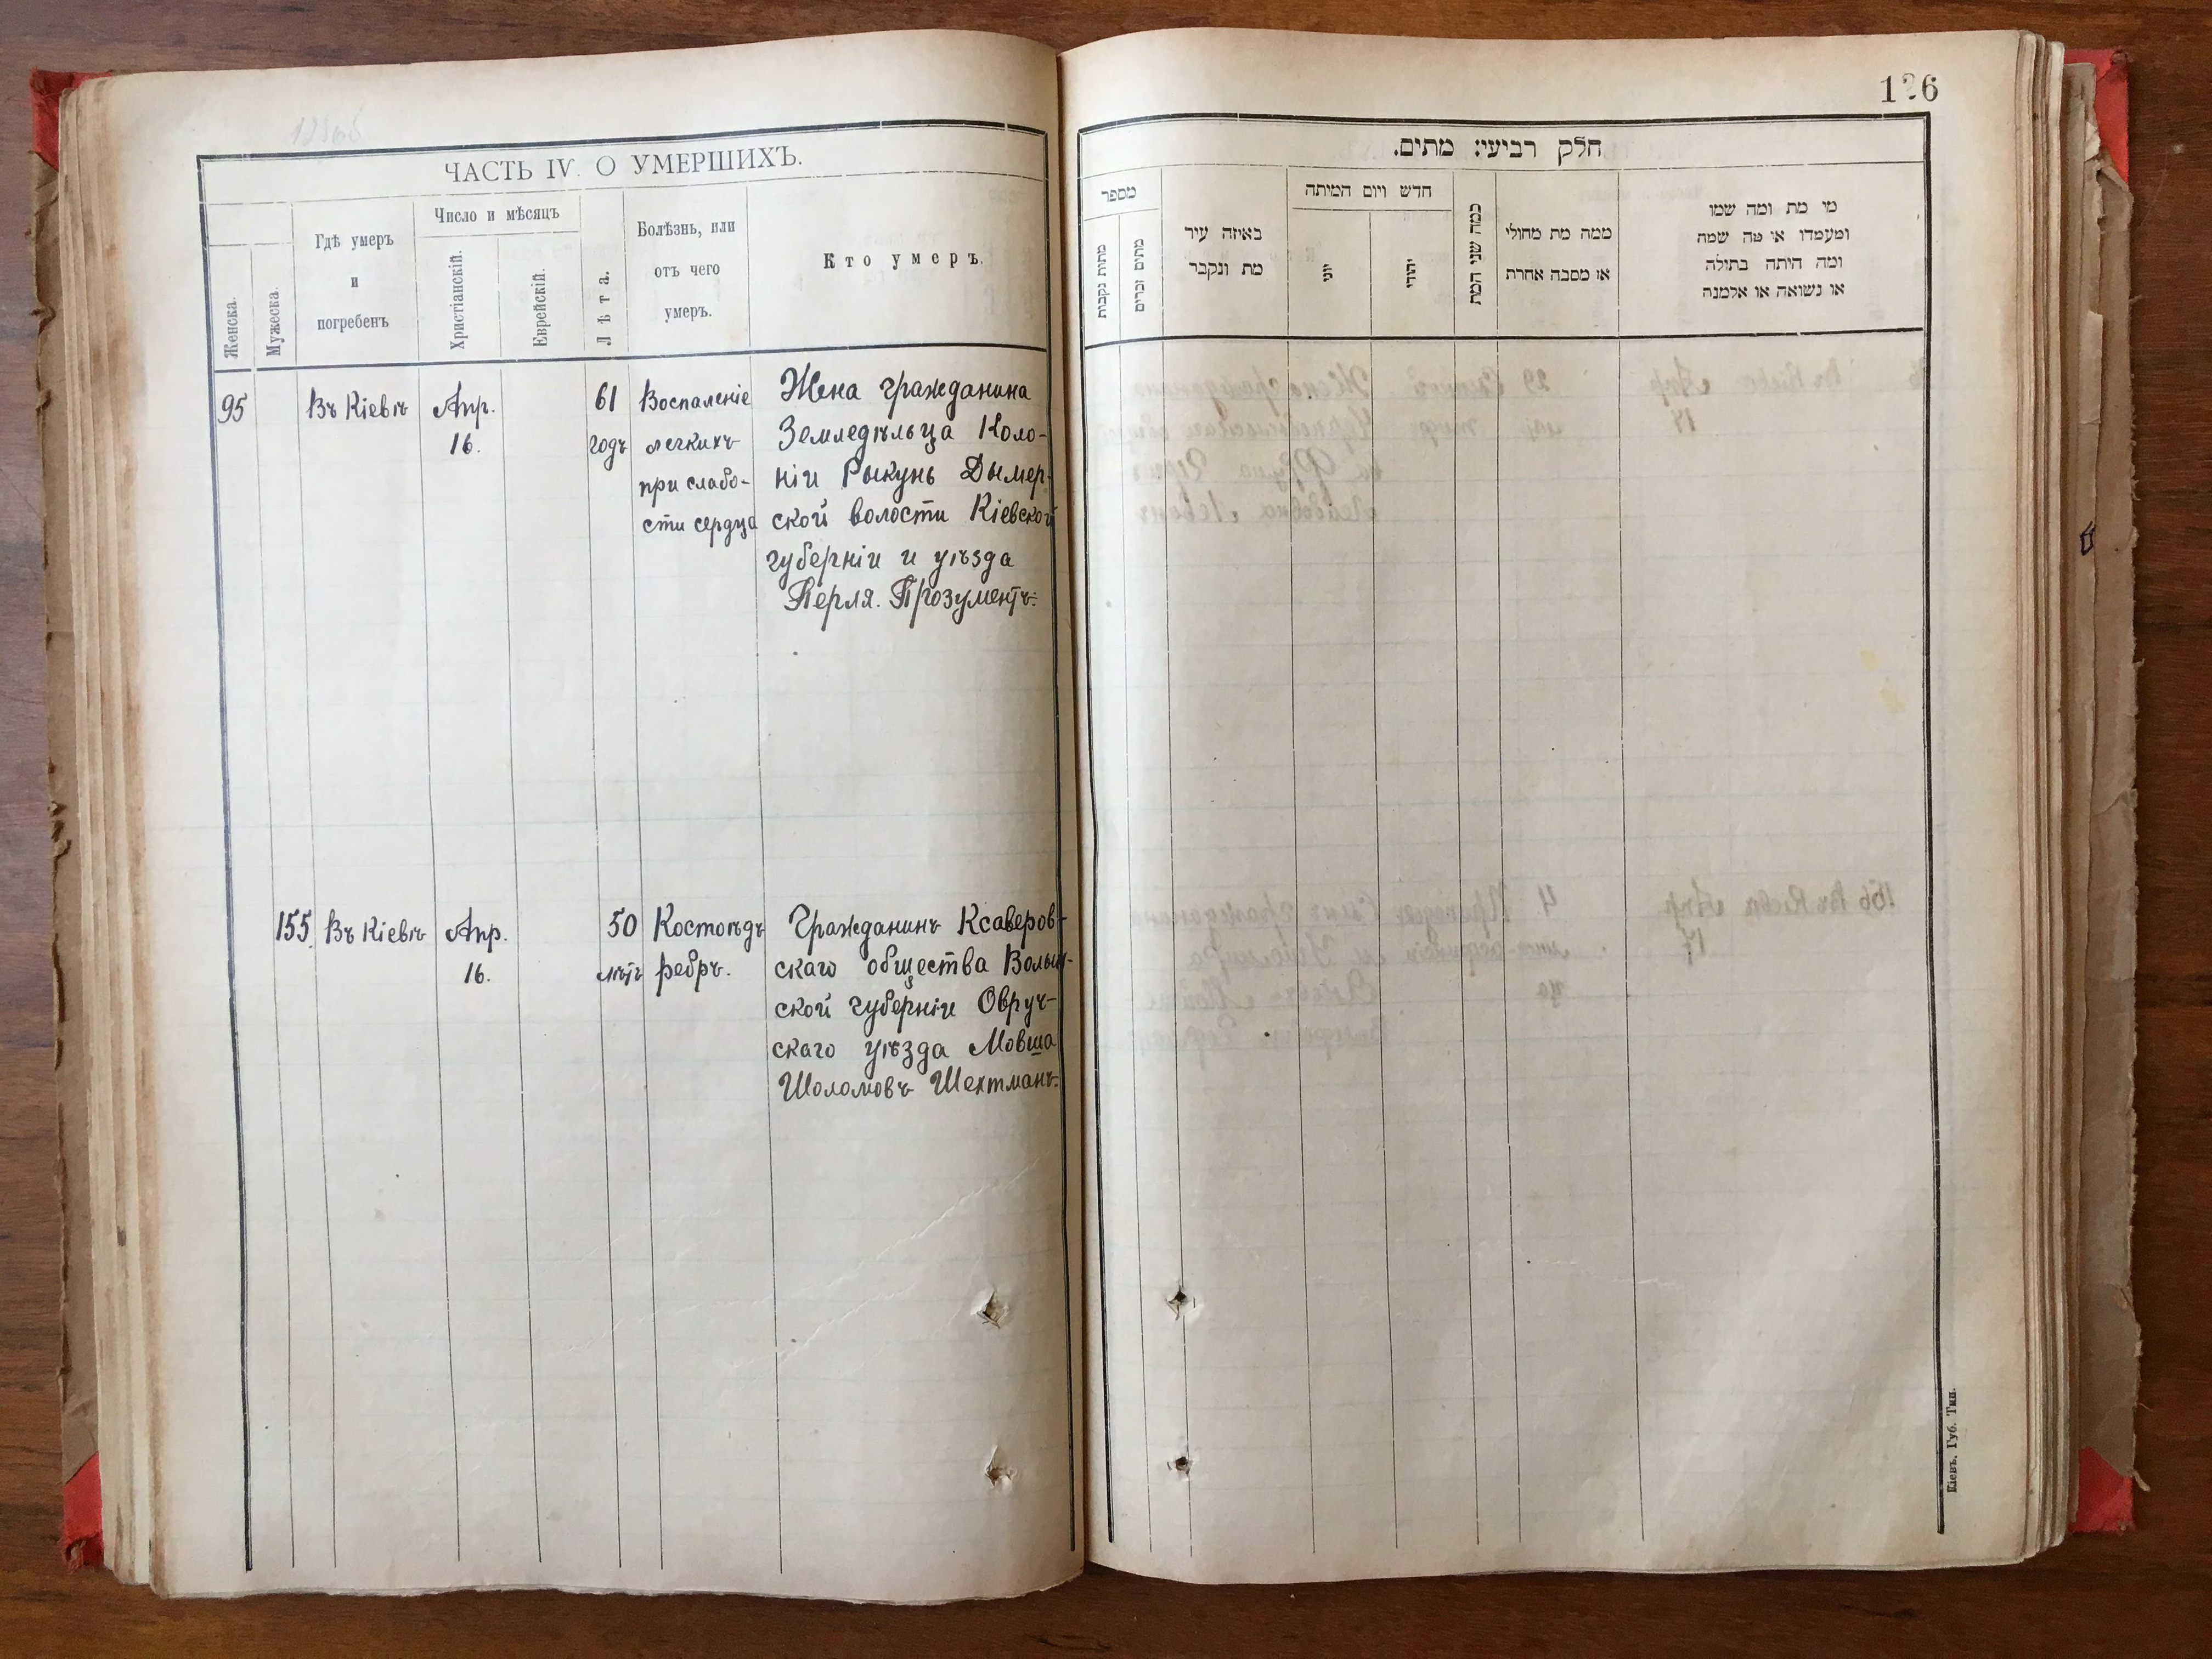 ЧАСТЬ IV. О УМЕРШИХЪ.
Женска.
Мужеска.
Гдѣ умеръ
и
погребенъ
Число и мѣсяцъ
Христіанскій.
Еврейскій.
Лѣта.
Болѣзнь, или
отъ чего
умеръ.
Кто умеръ.
95
Въ Кіевѣ
Апр.
16.
61
годъ
Воспаленіе
легкихъ
при слабо-
сти сердца
Жена гражданина
Земледѣльца Коло-
ніи Рыкунь Дымер-
ской волости Кіевской
губерніи и уѣзда
Перля. Прозументъ.
155
Въ Кіевѣ
Апр.
16.
50
лѣтъ
Костоѣдъ
ребръ.
Гражданинъ Ксаверов-
скаго общества Волын-
ской губерніи Овруч-
скаго уѣзда Мовша
Шоломовъ Шехтманъ.
126
חלק רביעי: מתים.
מספר
מתות נקבות
מתים זכרים
באיזה עיר
מת ונקבר
חדש ויום המיתה
יוני
יהודי
כמה שני המת
ממה מת מחולי
או מסבה אחרת
מי מת ומה שמו
ומעמדו או מה שמה
ומה היתה בתולה
או נשואה או אלמנה
Кіевъ. Губ. Тип.